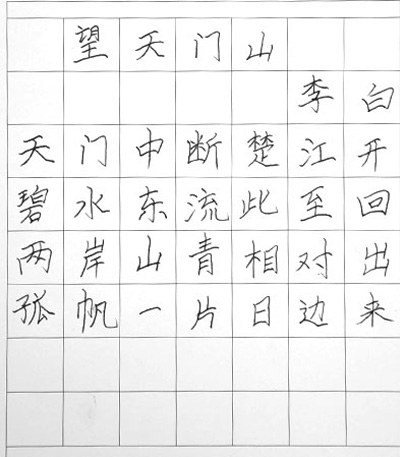 望天门山
李白
天门中断楚江开
碧水东流此至回
两岸山青相对出
孤帆一片日边来